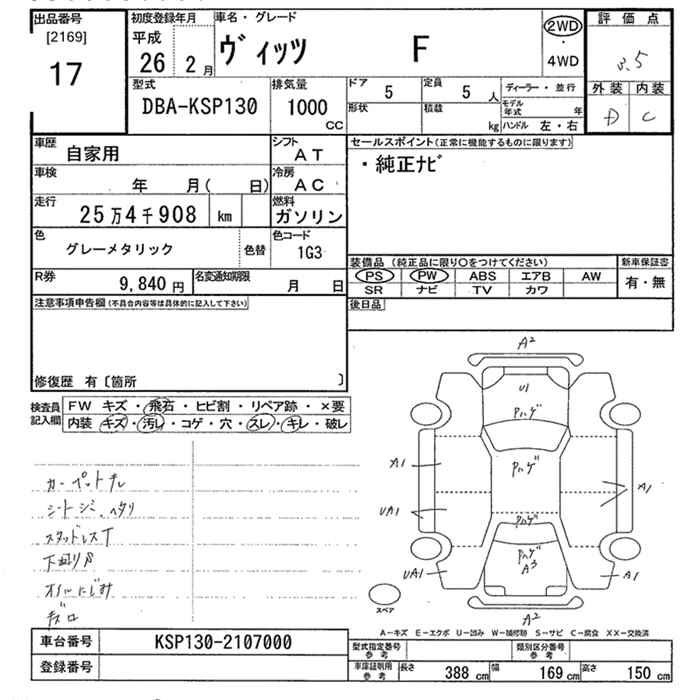 出品番号
[2169]
17
初度登録年月
平成
26 2月
車名・グレード
ヴィッツ F
2WD
・
4WD
評価点
3.5
外装 内装
D C
型式
DBA-KSP130
排気量
1000
CC
ドア 5
定員 5人
形状
積載 kg
ディーラー・並行
モデル年式 年
ハンドル 左・右
車歴
自家用
シフト
AT
車検
年 月( 日)
冷房
AC
走行
25万4千908 km
燃料
ガソリン
色
グレーメタリック
色替
色コード
1G3
R券
9,840円
名変通知期限
月 日
セールスポイント(正常に機能するものに限ります)
・純正ナビ
装備品 (純正品に限り○をつけてください)
PS PW ABS エアB AW
SR ナビ TV カワ
新車保証書
有・無
後日品
注意事項申告欄(不具合内容等は具体的に記入して下さい)
修復歴 有〔箇所 〕
検査員
記入欄
FW キズ・飛石・ヒビ割・リペア跡・×要
内装 キズ・汚レ・コゲ・穴・スレ・キレ・破レ
カーペットキレ
シートシミ、ヘタリ
スタッドレスT
下廻りサビ
オイルにじみ
A2
U1
Pハゲ
Pハゲ
A1
A1
UA1
Pハゲ
Pハゲ
A3
UA1
A1
A2
スペア
A－キズ E－エクボ U－凹み W－補修跡 S－サビ C－腐食 XX－交換済
車台番号
KSP130-2107000
登録番号
型式指定番号
参考
類別区分番号
参考
車庫証明用
参考
長さ 388 cm 幅 169 cm 高さ 150 cm